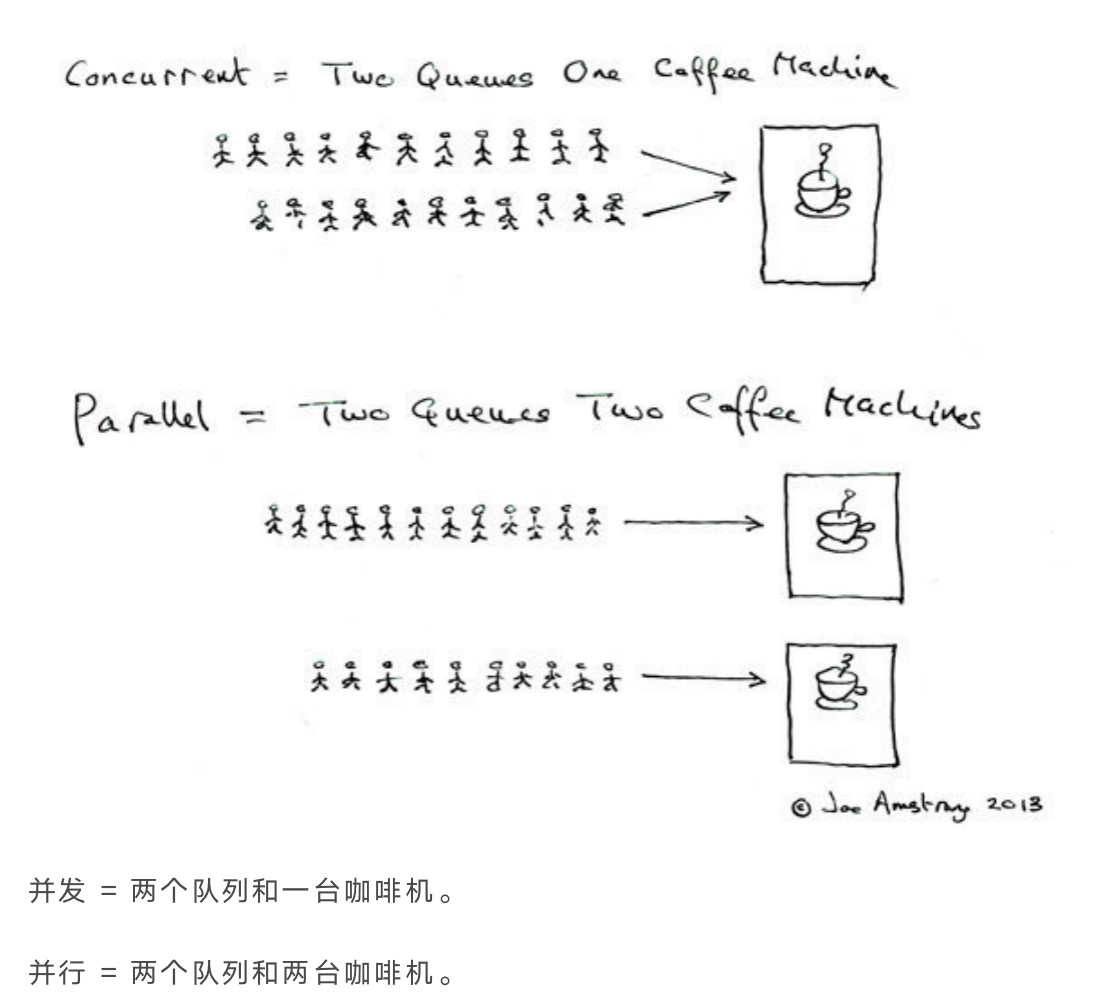 Concurrent = Two Queues One Coffee Machine
Parallel = Two Queues Two Coffee Machines
© Joe Armstrong 2013
并发 = 两个队列和一台咖啡机。
并行 = 两个队列和两台咖啡机。